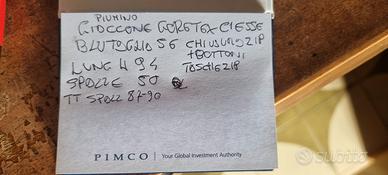 PIUMINO
GIACCONE GORETEX CIESSE
BLU TAGLIA 56 CHIUSURA ZIP
+ BOTTONI
LUNGH 94 TASCHE ZIP
SPALLE 50
TT SPALL 87-90
PIMCO | Your Global Investment Authority
subito